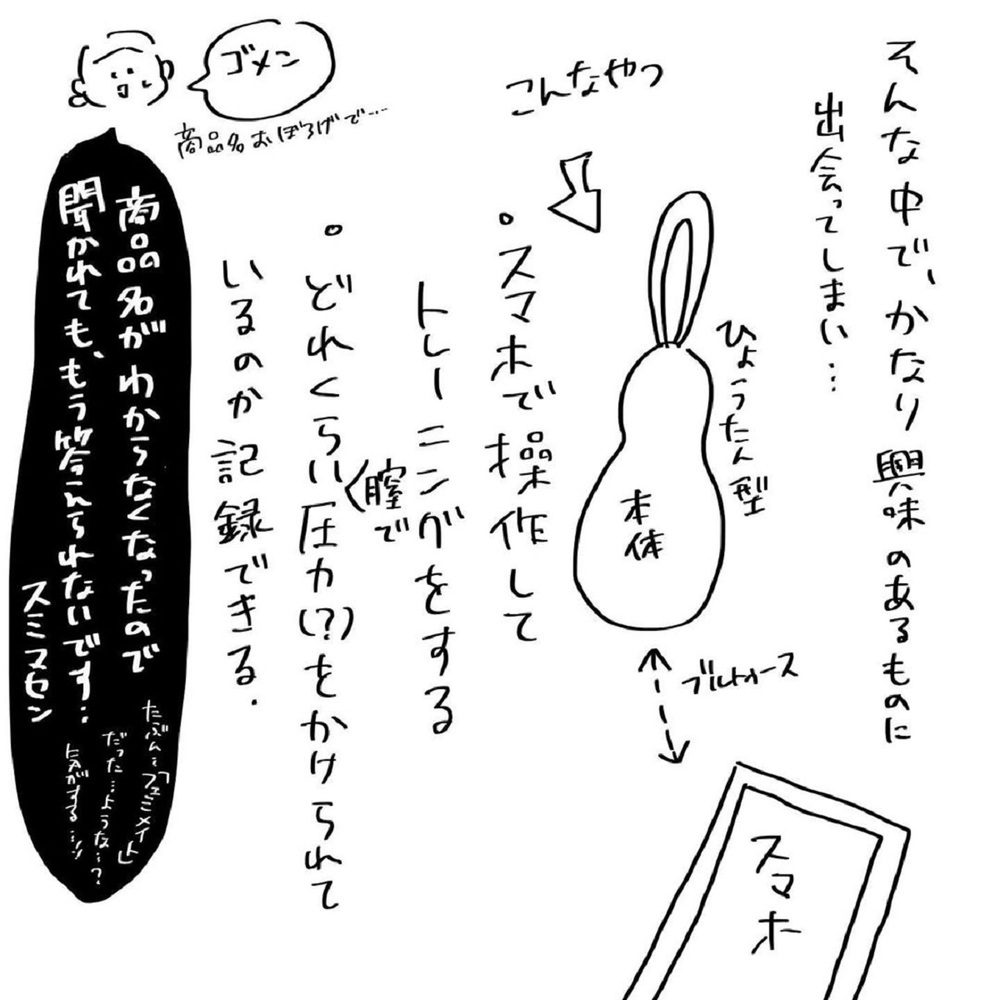 そんな中で、かなり興味のあるものに
出会ってしまい…
こんなやつ
ひょうたん型
本体
ブルトゥース
スマホ
。スマホで操作して
トレーニングをする
。どれくらい圧力(?)をかけられて
膣で
いるのか記録できる.
ゴメン
商品名おぼろげで……
商品名がわからなくなったので
聞かれても、もう答えられないです…
スミマセン
たぶん…「フェミメイト」
だった…ような…?
気がする…